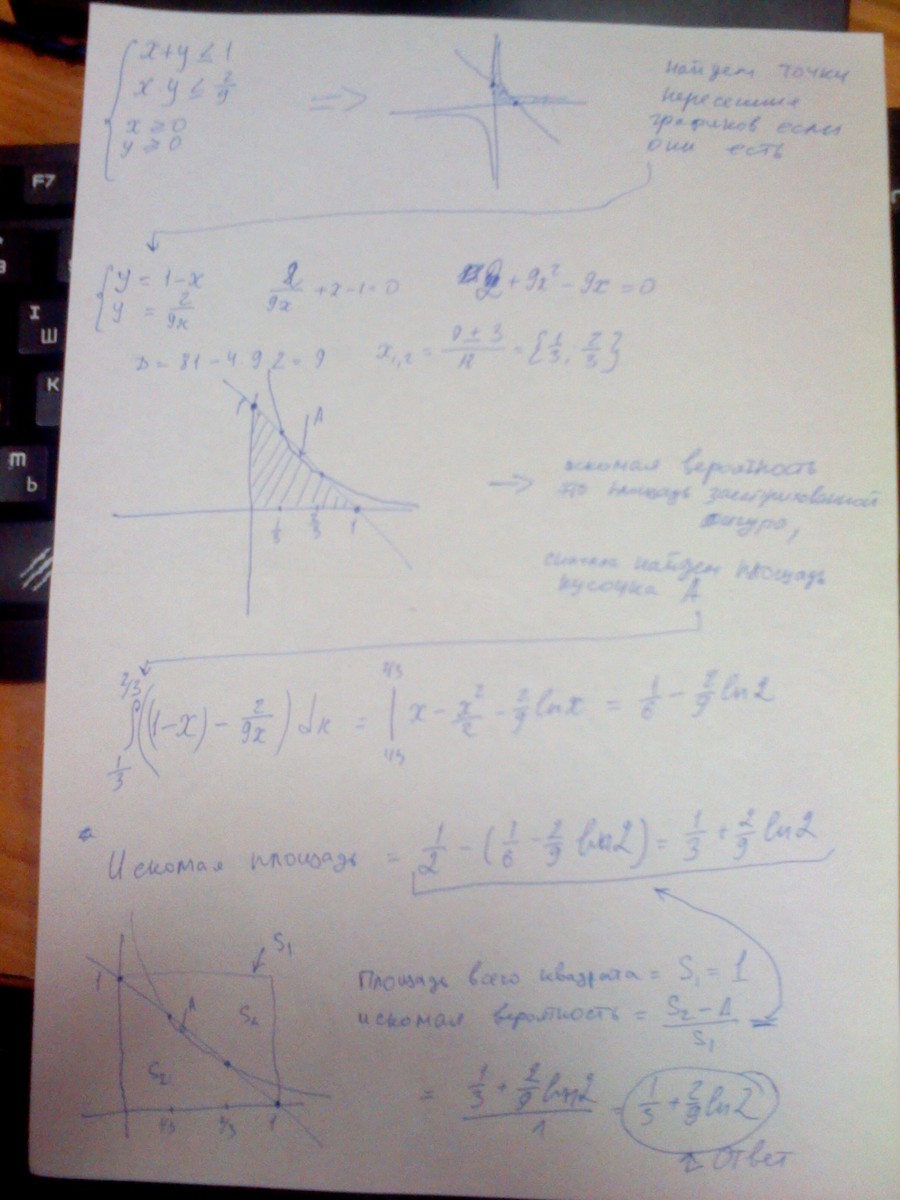 x+y ≤ 1
x·y ≤ 2/9
x ≥ 0
y ≥ 0
=>
найдем точки
пересечния
графиков если
они есть
F7
I
Ш
K
m
Ь
y = 1-x
y = 2/9x
2/9x + x-1=0
2 + 9x² - 9x = 0
D = 81-4·9·2 = 9
x₁,₂ = (9 ± 3)/18 = {1/3; 2/3}
1
A
1/3 2/3 1
искомая вероятность
это площадь заштрихованной
фигуры,
сначала найдем площадь
кусочка A
∫_{1/3}^{2/3} ((1-x) - 2/9x) dx = |_{1/3}^{2/3} x - x²/2 - 2/9 ln x = 1/6 - 2/9 ln2
Искомая площадь = 1/2 - (1/6 - 2/9 ln2) = 1/3 + 2/9 ln2
S₁
1
A
S₂
S₂
1/3 2/3 1
Площадь всего квадрата = S₁ = 1
искомая вероятность = (S₂ - A)/S₁ =
= (1/3 + 2/9 ln2)/1 = 1/3 + 2/9 ln2
Ответ